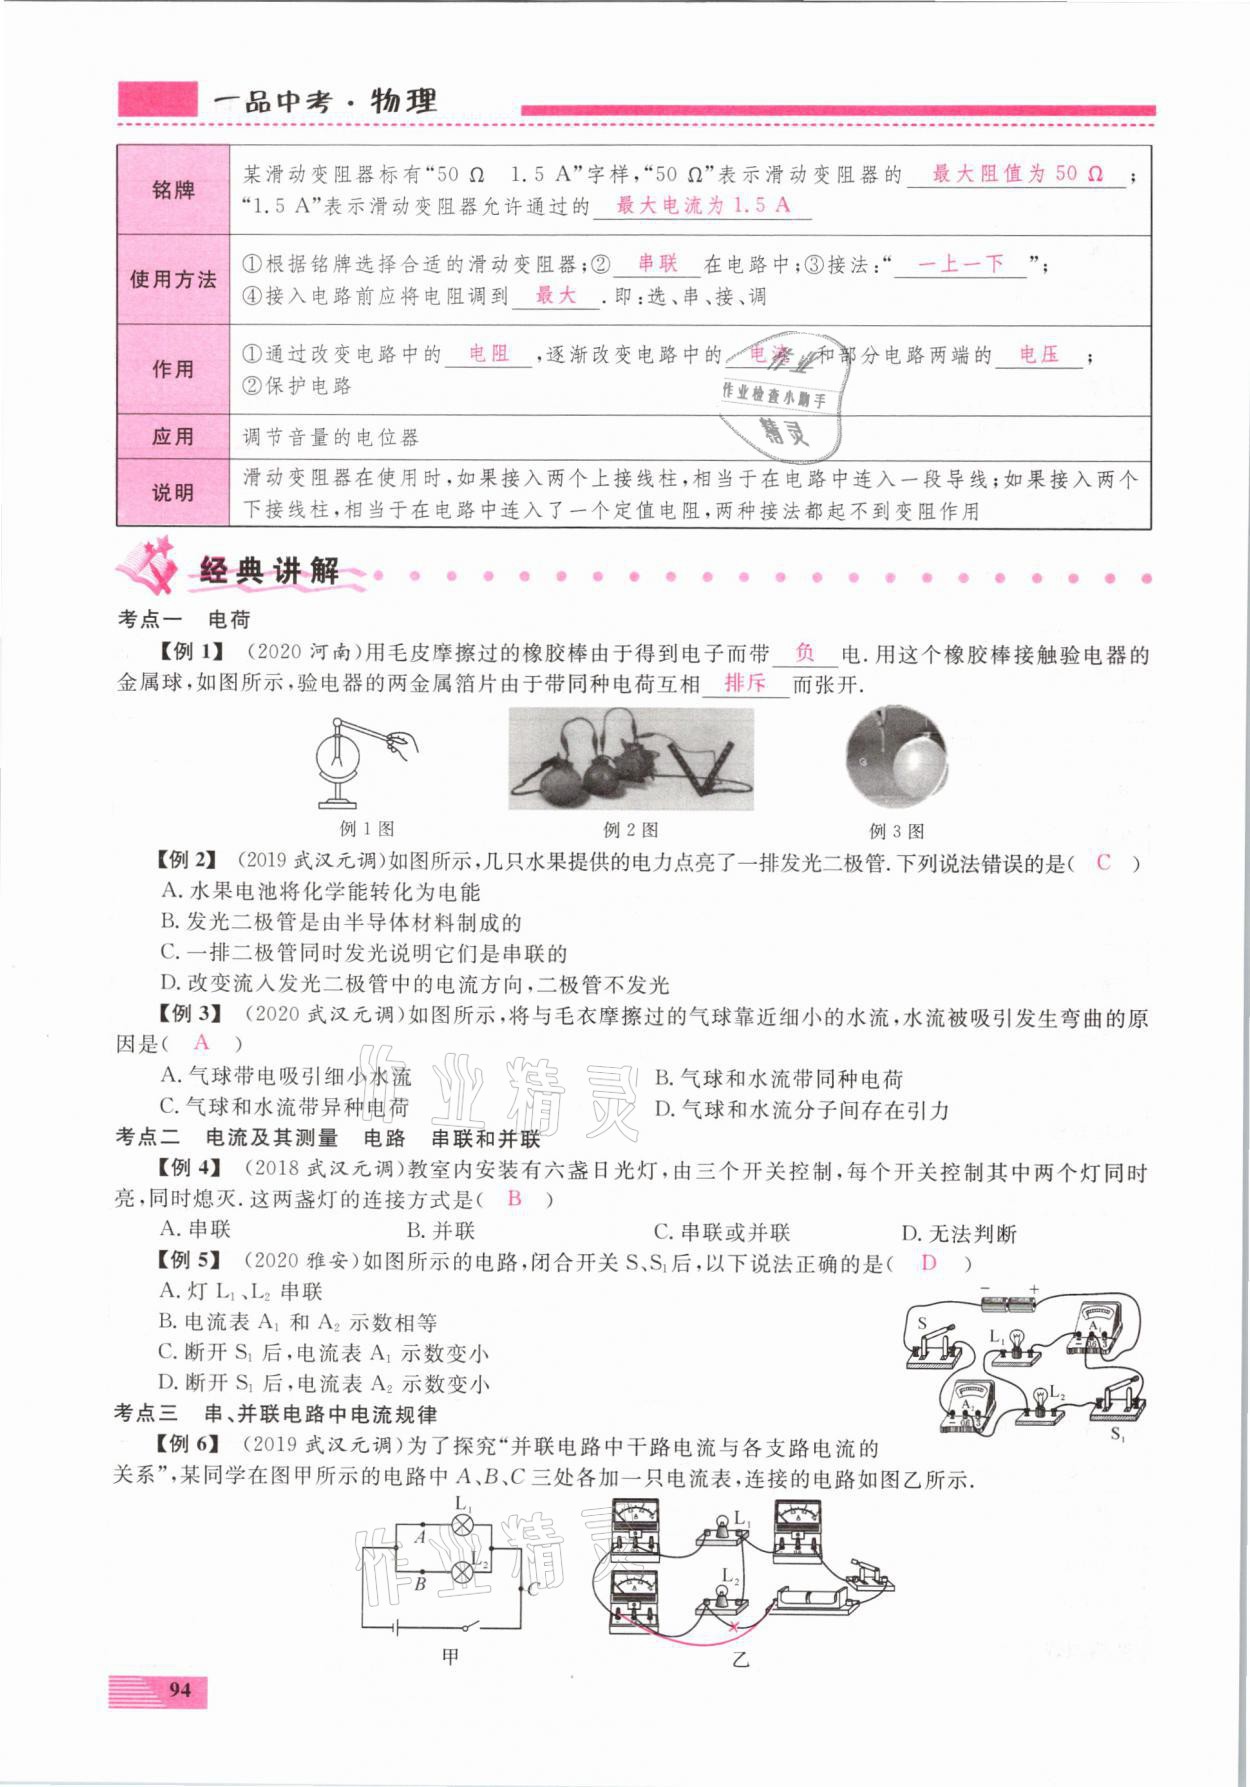 一品中考·物理
铭牌
某滑动变阻器标有“50 Ω 1.5 A”字样,“50 Ω”表示滑动变阻器的 最大阻值为 50 Ω ;
“1.5 A”表示滑动变阻器允许通过的 最大电流为 1.5 A
使用方法
①根据铭牌选择合适的滑动变阻器;② 串联 在电路中;③接法:“ 一上一下 ”;
④接入电路前应将电阻调到 最大 .即:选、串、接、调
作用
①通过改变电路中的 电阻 ,逐渐改变电路中的 电流 和部分电路两端的 电压 ;
②保护电路
作业
作业检查小助手
精灵
应用
调节音量的电位器
说明
滑动变阻器在使用时,如果接入两个上接线柱,相当于在电路中连入一段导线;如果接入两个
下接线柱,相当于在电路中连入了一个定值电阻,两种接法都起不到变阻作用
经典讲解
考点一 电荷
【例 1】 (2020 河南)用毛皮摩擦过的橡胶棒由于得到电子而带 负 电.用这个橡胶棒接触验电器的
金属球,如图所示,验电器的两金属箔片由于带同种电荷互相 排斥 而张开.
例 1 图 例 2 图 例 3 图
【例 2】 (2019 武汉元调)如图所示,几只水果提供的电力点亮了一排发光二极管.下列说法错误的是( C )
A. 水果电池将化学能转化为电能
B. 发光二极管是由半导体材料制成的
C. 一排二极管同时发光说明它们是串联的
D. 改变流入发光二极管中的电流方向,二极管不发光
【例 3】 (2020 武汉元调)如图所示,将与毛衣摩擦过的气球靠近细小的水流,水流被吸引发生弯曲的原
因是( A )
A. 气球带电吸引细小水流 B. 气球和水流带同种电荷
C. 气球和水流带异种电荷 D. 气球和水流分子间存在引力
作业精灵
考点二 电流及其测量 电路 串联和并联
【例 4】 (2018 武汉元调)教室内安装有六盏日光灯,由三个开关控制,每个开关控制其中两个灯同时
亮,同时熄灭.这两盏灯的连接方式是( B )
A. 串联 B. 并联 C. 串联或并联 D. 无法判断
【例 5】 (2020 雅安)如图所示的电路,闭合开关 S、S₁后,以下说法正确的是( D )
A. 灯 L₁、L₂ 串联
B. 电流表 A₁ 和 A₂ 示数相等
C. 断开 S₁ 后,电流表 A₁ 示数变小
D. 断开 S₁ 后,电流表 A₂ 示数变小
− +
S L₁ A₁
A₂ L₂ S₁
考点三 串、并联电路中电流规律
【例 6】 (2019 武汉元调)为了探究“并联电路中干路电流与各支路电流的
关系”,某同学在图甲所示的电路中 A、B、C 三处各加一只电流表,连接的电路如图乙所示.
L₁
A
L₂
B
C
甲
L₁
L₂
乙
作业精灵
94